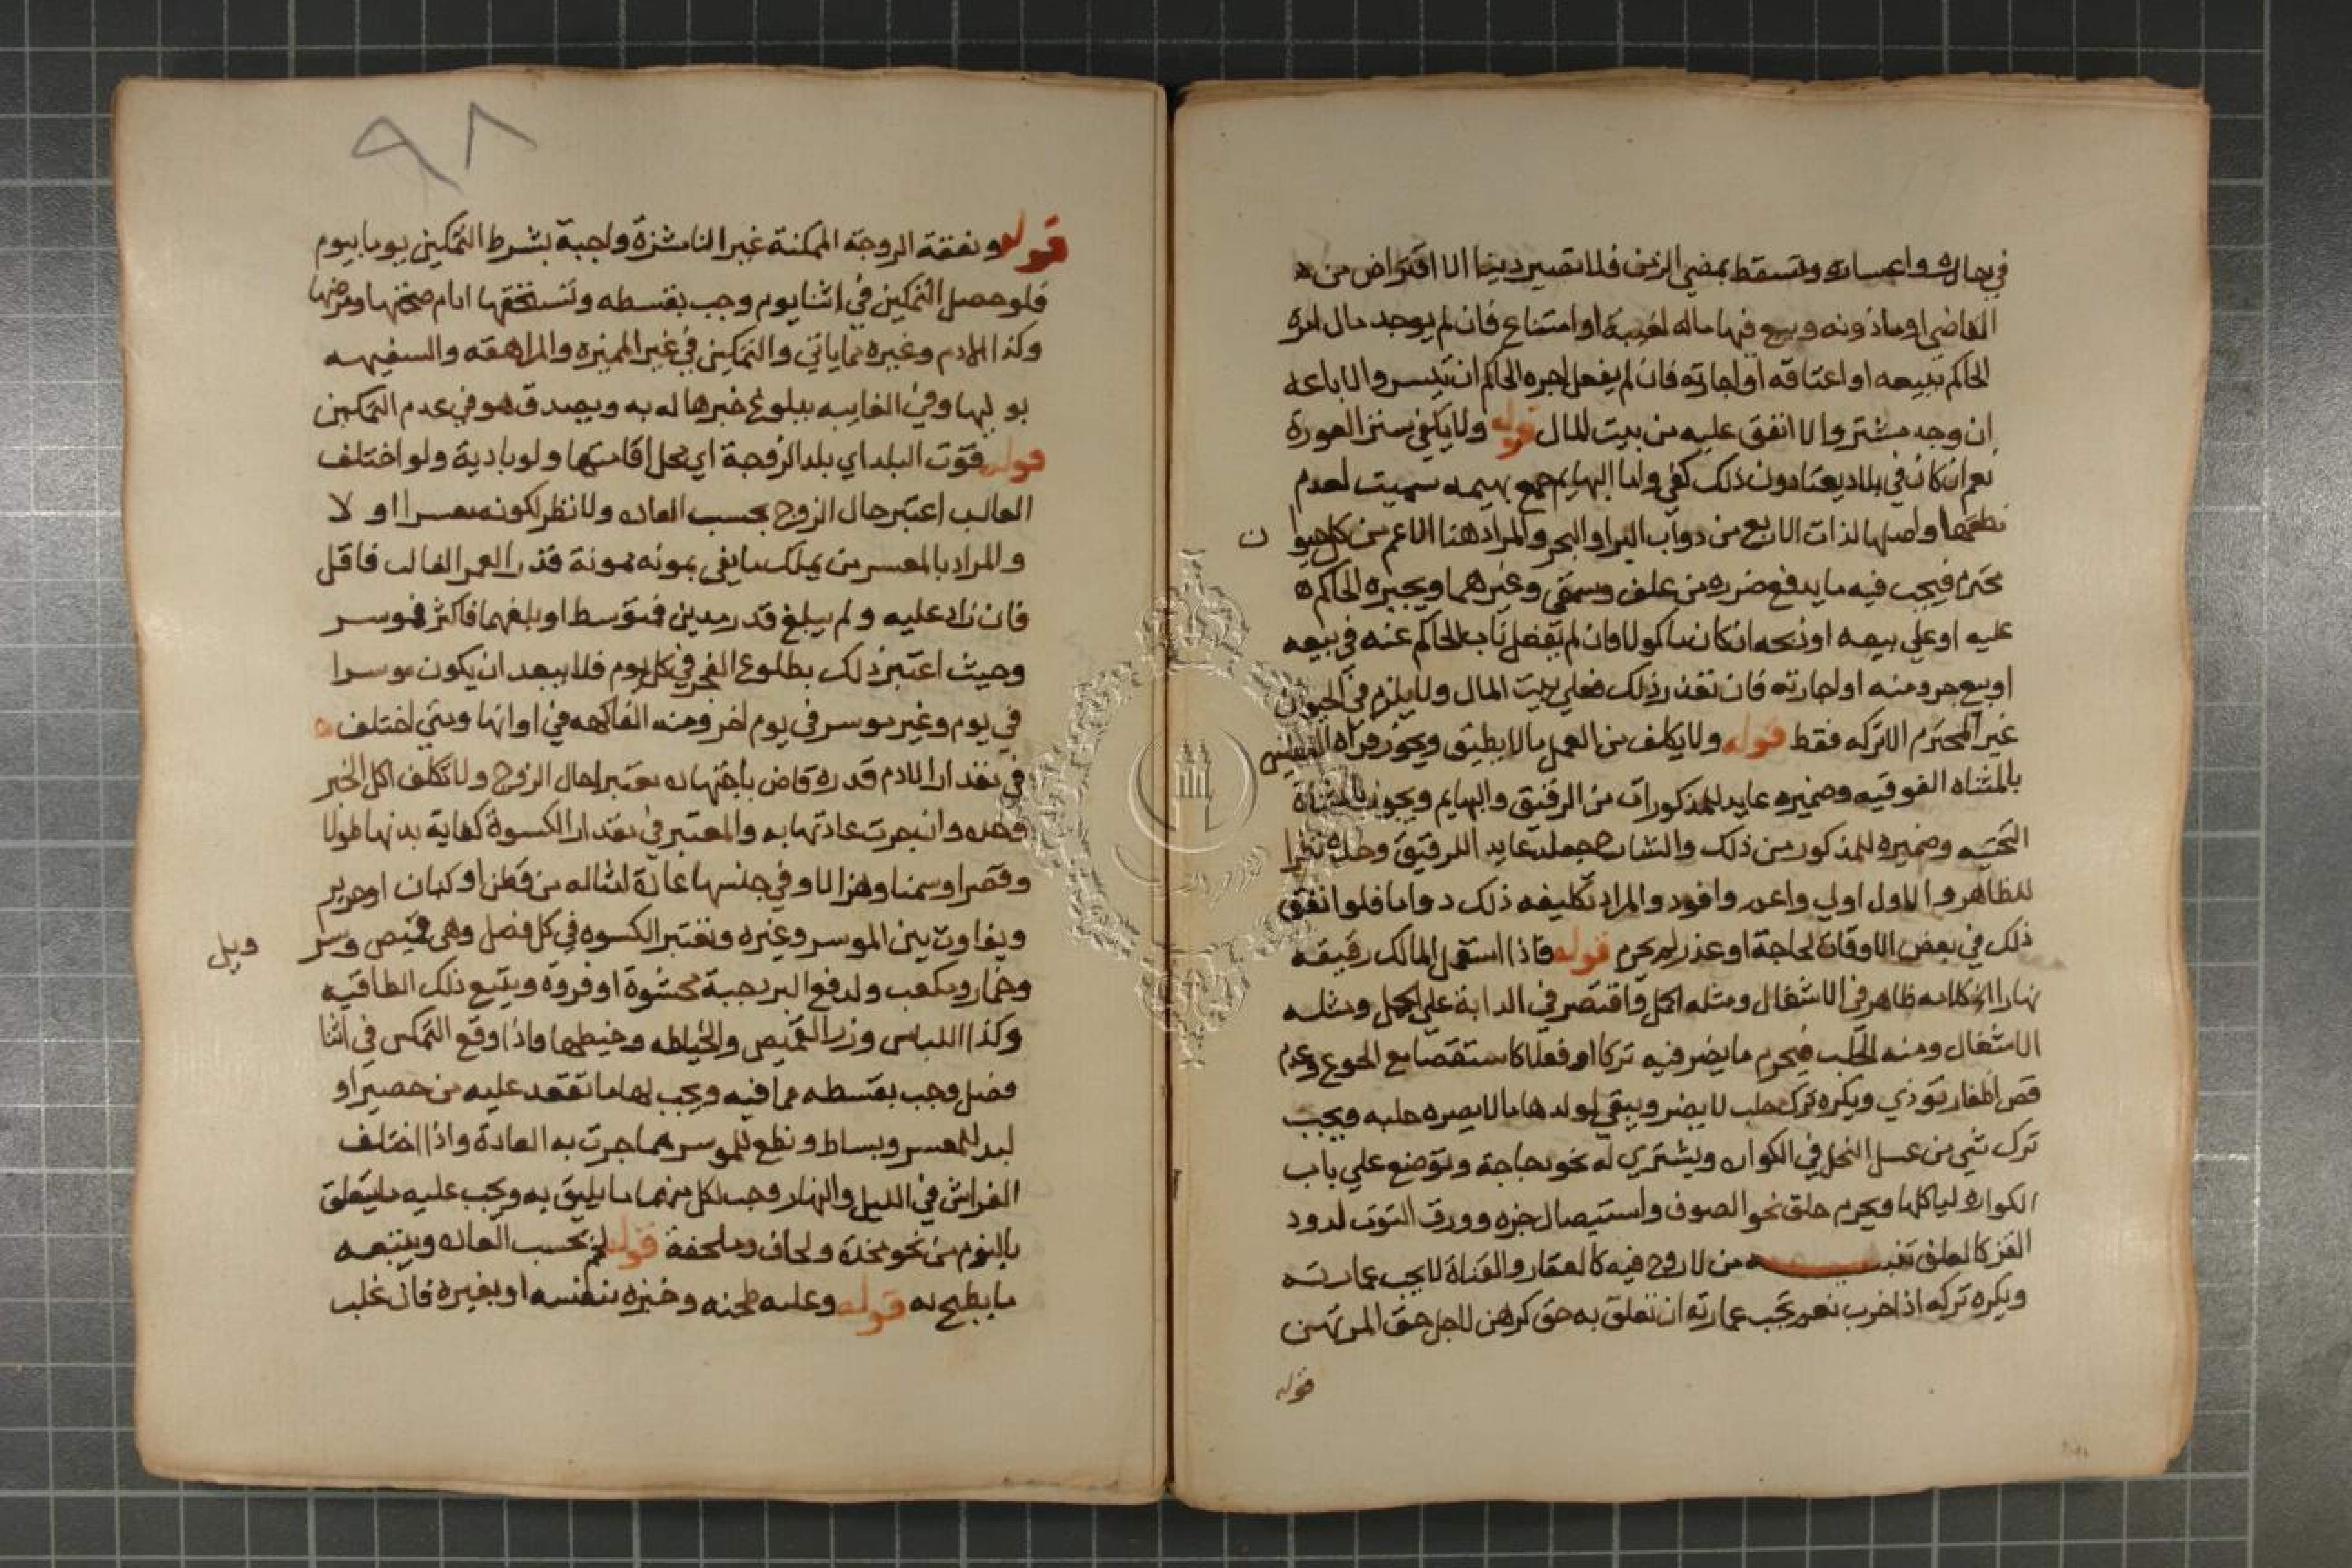 في حال واعساره وتسقط بمضي الزمن فلا تصير دينا الا اقتراض من
القاضي او ماذونه ويبيع فيها ماله لغيبة او امتناع فان لم يوجد مال امره
الحاكم ببيعه او اعتاقه او اجارته فان لم يفعل اجره الحاكم ان تيسر والا باعه
ان وجد مشتر والا انفق عليه من بيت المال قوله ولا يكفي ستر العورة
نعم ان كان في بلاد يعتادون ذلك كفي واما البهايم جمع بهيمه سميت لعدم
نطقها واصلها لذات الاربع من دواب البر او البحر والمراد هنا الاعم من كل حيوا ن
محترم فيجب فيه ما يدفع ضرره من علف وسقي وغيرهما ويجبره الحاكم
عليه او علي بيعه او ذبحه ان كان ماكولا فان لم يفعل ناب الحاكم عنه في بيعه
او بيع جزء منه او اجارته فان تعذر ذلك فعلي بيت المال ولا يلزم في الحيوان
غير المحترم الا تركه فقط قوله ولا يكلف من العمل ما لا يطيق ويجوز قراة
بالمثناه الفوقيه وضميره عايد للمذكورات من الرقيق والبهايم ويجوز بالمثناة
التحتيه وضميره للمذكور من ذلك والشارح جعله عايد اللرقيق وحده نظرا
للظاهر والاول اولي واعم وافود والمراد تكليفه ذلك دواما فلو اتفق
ذلك في بعض الاوقات لحاجة او عذر لم يحرم قوله فاذا استعمل المالك رقيقه
نهارا الخ كلامه ظاهر في الاشغال ومثله الحمل واقتصر في الدابة علي الحمل ومثله
الاشغال ومنه الحلب فيحرم ما يضر فيه تركا او فعلا كاستقصا مع الجوع وعدم
قص اظفار توذي ويكره ترك حلب لا يضر ويبقي لولدها ما لا يضره حلبه ويجب
ترك شي من عسل النحل في الكواره ويشتري له نحو دجاجة وتوضع علي باب
الكواره لياكلها ويحرم حلق نحو الصوف واستيصال جزه وورق التوت لدود
القز كالعلف تنبيـــه من لا روح فيه كالعقار والقناة لا يجب عمارته
ويكره تركه اذا خرب نعم تجب عمارته ان تعلق به حق كرهن لاجل حق المرتهن
قوله
٩٨
قوله ونفقة الزوجة الممكنة غير الناشزة واجبة بشرط التمكين يوما بيوم
فلو حصل التمكين في اثنا يوم وجب بقسطه وتستحقها ايام صحتها ومرضها
وكذا الادم وغيره مما ياتي والتمكين في غير المميزه والمراهقه والسفيهه
بوليها وفي الغايبه ببلوغ خبرها له به ويصدق هو في عدم التمكين
قوله قوت البلد اي بلد الزوجة اي محل اقامتها ولو بادية ولو اختلف
الغالب اعتبر حال الزوج بحسب العاده ولا نظر لكونه معسرا او لا
والمراد بالمعسر من يملك ما يفي بمونه مونة قدر العمر الغالب فاقل
فان زاد عليه ولم يبلغ قدر مدين فمتوسط او بلغهما فاكثر فموسر
وحيث اعتبر ذلك بطلوع الفجر في كل يوم فلا يبعد ان يكون موسرا
في يوم وغير موسر في يوم اخر ومنه الفاكهه في اوانها ومتي اختلف
في مقدار الادم قدره قاض باجتهاده معتبرا حال الزوج ولا تكلف اكل الخبز
وحده وان جرت عادتها به والمعتبر في مقدار الكسوة كفاية بدنها طولا
وقصرا وسمنا وهزالا وفي جنسها عادة امثاله من قطن او كتان او حرير
ويفاوت بين الموسر وغيره وتعتبر الكسوه في كل فصل وهي قميص وسر ويل
وخمار ومكعب ولدفع البرد جبة محشوة او فروة ويتبع ذلك الطاقيه
وكذا اللباس وزر القميص والخياطه وخيطها واذا وقع التمكين في اثنا
فصل وجب بقسطه مما فيه ويجب لها ما تقعد عليه من حصير او
لبد للمعسر وبساط ونطع للموسر مما جرت به العادة واذا اختلف
الفراش في الليل والنهار وجب لكل منهما ما يليق به ويجب عليه ما يتعلق
بالنوم من نحو مخدة ولحاف وملحفة قوله لحم بحسب العاده ويتبعه
ما يطبخ به قوله وعليه طحنه وخبزه بنفسه او بغيره فان غلب